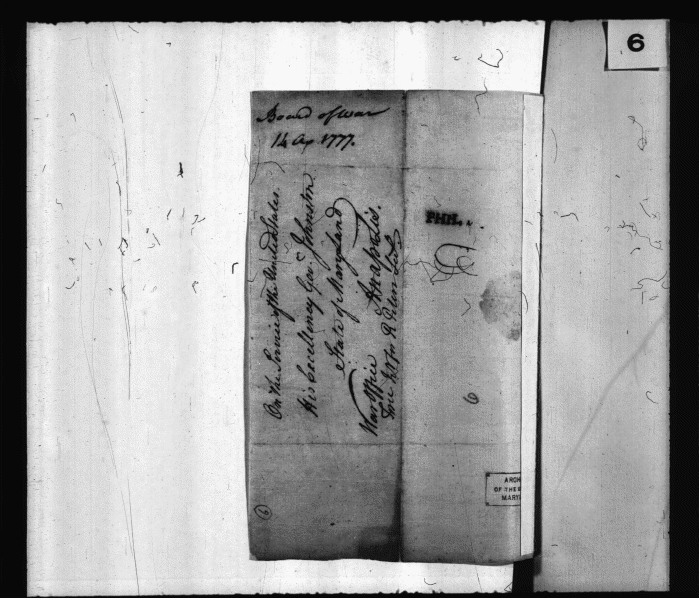 6
Board of War
14 Ap 1777.
On the Service of the United States.
His Excellency Gov.r Johnston
State of Maryland
Anapolis.
War Office
PHIL.
6
ARCH
OF THE
MARY
6